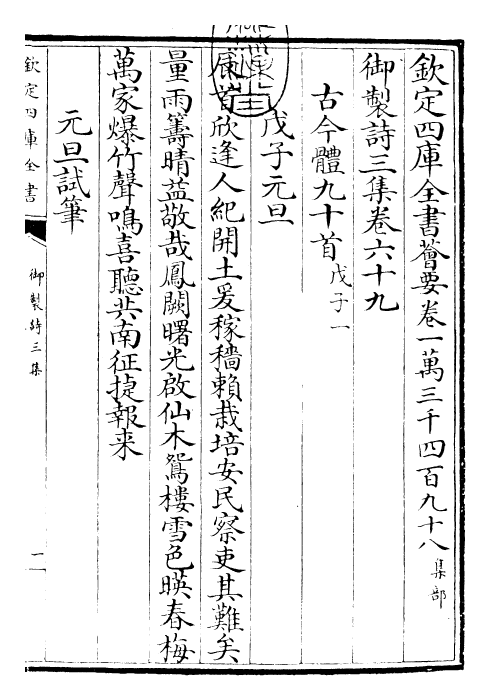 欽定四庫全書薈要卷一萬三千四百九十八集部
御製詩三集卷六十九
古今體九十首戊子一
戊子元旦
首欣逢人紀開土爰稼穡賴栽培安民察吏其難矣
量雨籌晴益敬哉鳳闕曙光啟仙木鴛樓雪色暎春梅
萬家爆竹聲鳴喜聽共南征捷報来
元旦試筆
欽定四庫全書
御製詩三集
一